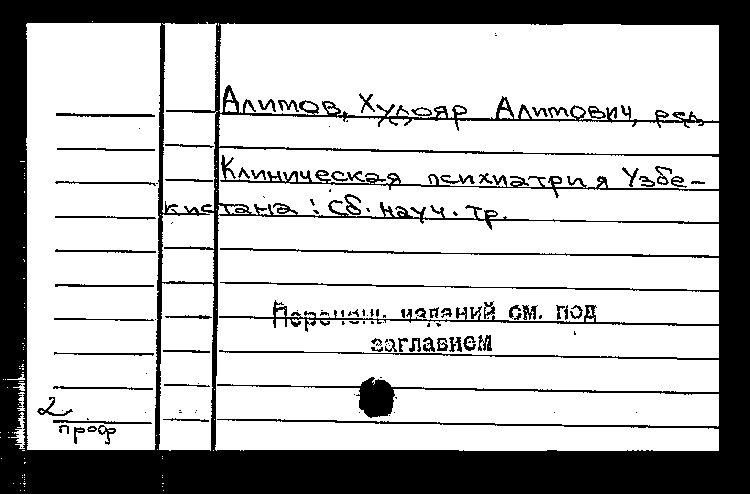 Алимов, Худояр Алимович, ред.
Клиническая психиатрия Узбе-
кистана: Сб. науч. тр.
Перечень изданий см. под
заглавием
2
проф